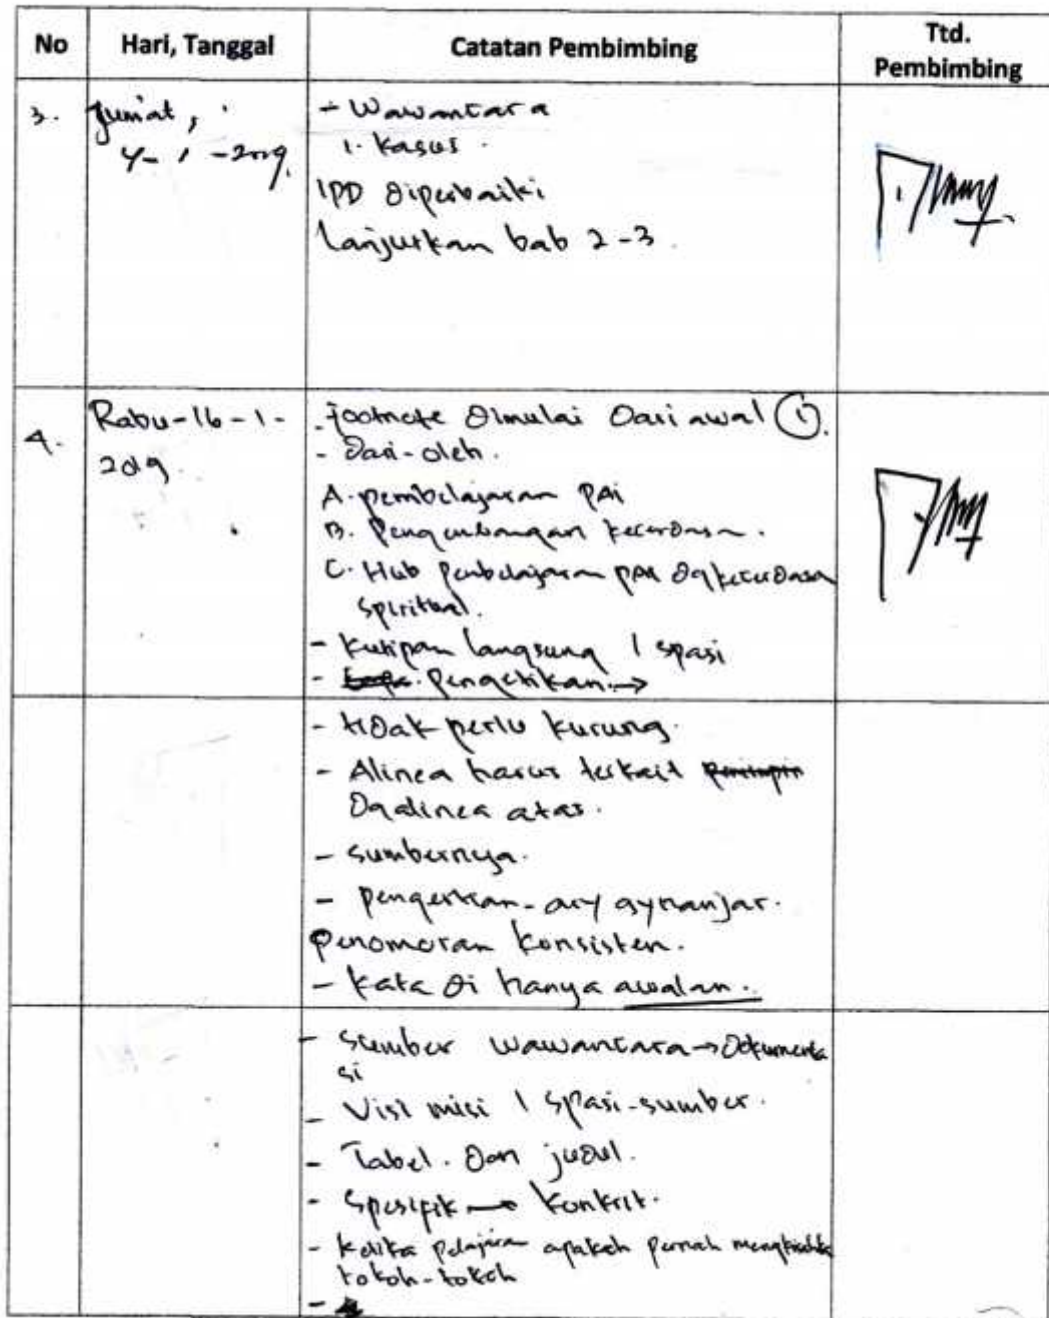 No Hari, Tanggal Catatan Pembimbing Ttd. Pembimbing
3. Jumat,
4-1-2019
- Wawancara
1. Kasus.
IPD diperbaiki
lanjutkan bab 2-3
4. Rabu-16-1-
2019
- footnote dimulai dari awal (1).
- dari-oleh.
A. pembelajaran PAI
B. Pengembangan kecerdasan.
C. Hub pembelajaran PAI dg kecerdasan
spiritual.
- Kutipan langsung 1 spasi
- pengetikan. →
- tidak perlu kurung.
- Alinea harus terkait
dg alinea atas.
- sumbernya.
- pengertian - ary gynanjar.
penomoran konsisten.
- kata di hanya awalan.
- sumber wawancara → Dokumenta
si
- Visi misi 1 spasi-sumber.
- Tabel. dan judul.
- Spesifik → konkrit.
- ketika pelajaran apakah pernah
tokoh-tokoh
-